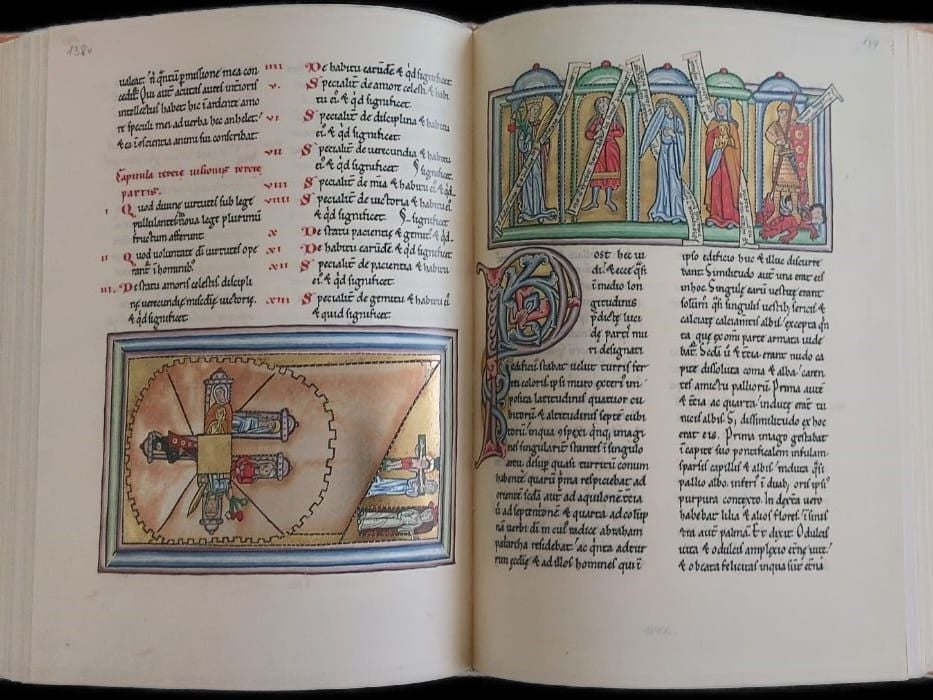 138v
ualeat. n̄ q̄ntū p̄missione mea con
cedit̄. Qui aut̄ acutas aures int̄ioris
intellectus habet hic ī ardente amo
re speculi mei ad uerba hec anhelet
& ea ī scientia animi sui conscribat.
Capitula tercie uisionis tercie
partis.
I Quod diuine uirtutes sub lege
pullulantes ī noua lege plurimū
fructum afferunt
II Quod uoluntate dī uirtutes ope
rant̄ ī hominib;
III. De statu amoris celestis discipli
nę uerecundię misc̄dię uictorię.
& qd̄ significet
IIII De habitu earūdē & qd̄ significet
V. Specialit̄ de amore celesti & habi
tu ei' & qd̄ significet.
VI Specialit̄ de disciplina & habitu
ei' & qd̄ significet
VII Specialit̄ de uerecundia & habitu
ei' & qd̄ significet
VIII Specialit̄ de mīa & habitu ei' & qd̄
significet.
VIIII Specialit̄ de uictoria & habitu ei'
& qd̄ significet.
X De statu pacientię & gemit' & qd̄
significet
XI De habitu earūdē & qd̄ significet
XII Specialit̄ de pacientia & habitu
ei' & qd̄ significet.
XIII Specialit̄ de gemitu & habitu ei'
& quid significet.
139
Post hec ui
di. & ecce q̄si
ī medio lon
gitudinis
p̄dictę luci
dę partis mu
ri designati
edificii stabat uelut turris fer
rei coloris ip̄si muro exteri'
posita latitudinis quatuor cu
bitorū & altitudinis septē cubi
torū. in qua aspexi qnq; imagi
nes singularit̄ stantes ī singulo
arcu desup̄ quasi turritū conum
habentē. quarū p̄ma respiciebat ad
orientē. sc̄da aut̄ ad aquilonē. t̄cia
ū ad septentrionē & quarta ad colūp
nā uerbi dī in cui' radice abraham
patriarcha residebat. ac qnta ad tur
rim ęcclię & ad illos homines qui ī
ip̄so edificio huc & illuc discurre
bant. Similitudo aut̄ una erat eis
in hoc. Singulę earū uestitę erant
q̄si singulis uestib; sericis &
calciatę calciamtis albis. excepta qn
ta quę ex omi parte armata uide
bat̄. Sc̄da ū & t̄cia erant nudo ca
pite dissoluta coma & alba. caren
tes amictu palliorū. Prima aut̄
& t̄cia ac quarta indutę erāt tu
nicis albis. Sꝫ dissimilitudo ex hoc
erat eis. Prima imago gestabat
ī capite suo pontificalem infulam
sparsis capillis & albis. induta q̄si
pallio albo. inferi' ī duab; oris ip̄si'
purpura contexto. In dext̄a uero
habebat lilia & alios flores. ī sinis
t̄a aut̄ palmā. Et dixit. O dulcis
uita & o dulcis amplexio etnę uitę.
& o beata felicitas in qua sūt et̄na